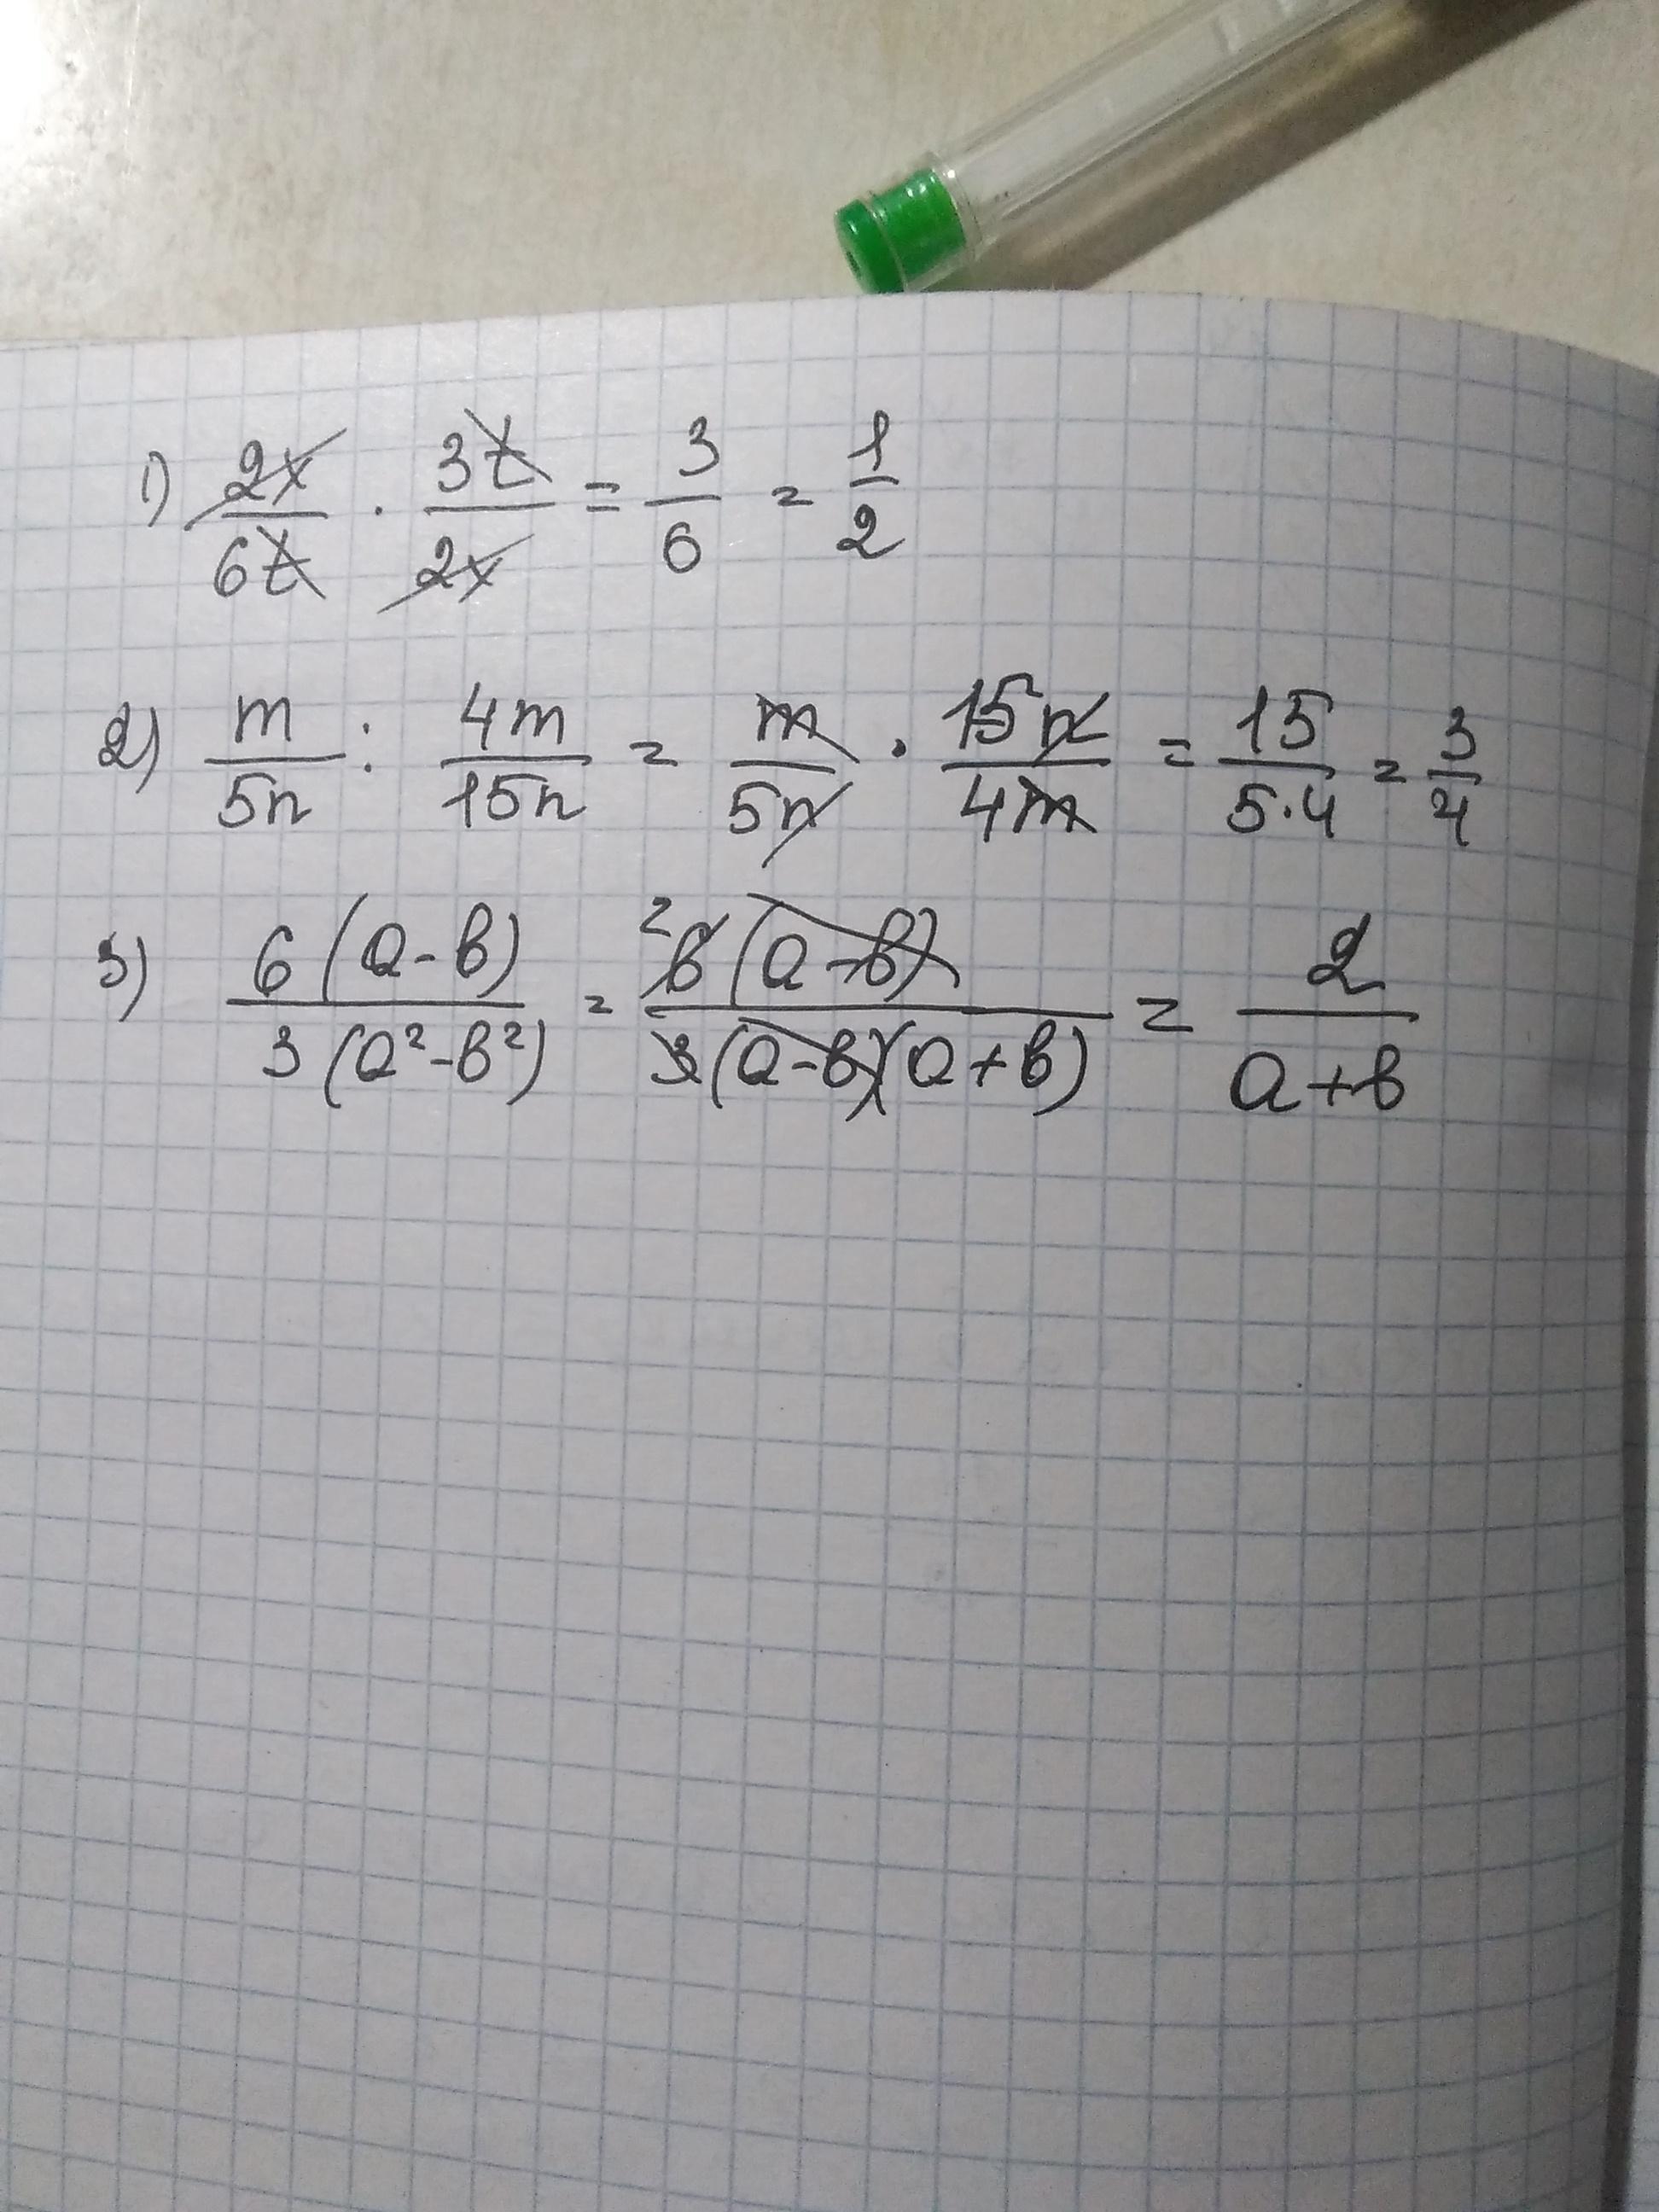 1) 2x/6t · 3t/2x = 3/6 = 1/2
2) m/5n : 4m/15n = m/5n · 15n/4m = 15/5·4 = 3/4
3) 6(a-b)/3(a²-b²) = ²6(a-b)/3(a-b)(a+b) = 2/a+b